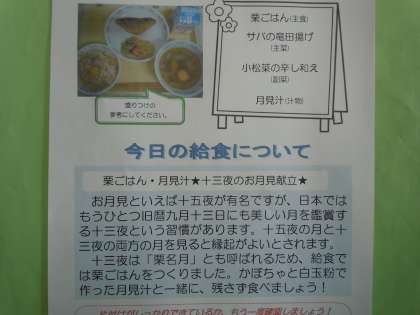 栗ごはん(主食)
サバの竜田揚げ
(主菜)
小松菜の辛し和え
(副菜)
月見汁(汁物)
盛りつけの
参考にしてください。
今日の給食について
栗ごはん・月見汁★十三夜のお月見献立★
お月見といえば十五夜が有名ですが、日本では
もうひとつ旧暦九月十三日にも美しい月を鑑賞す
る十三夜という習慣があります。十五夜の月と十
三夜の両方の月を見ると縁起がよいとされます。
十三夜は「栗名月」とも呼ばれるため、給食で
は栗ごはんをつくりました。かぼちゃと白玉粉で
作った月見汁と一緒に、残さず食べましょう!
片付けがしっかりできているか、もう一度確認しましょう!